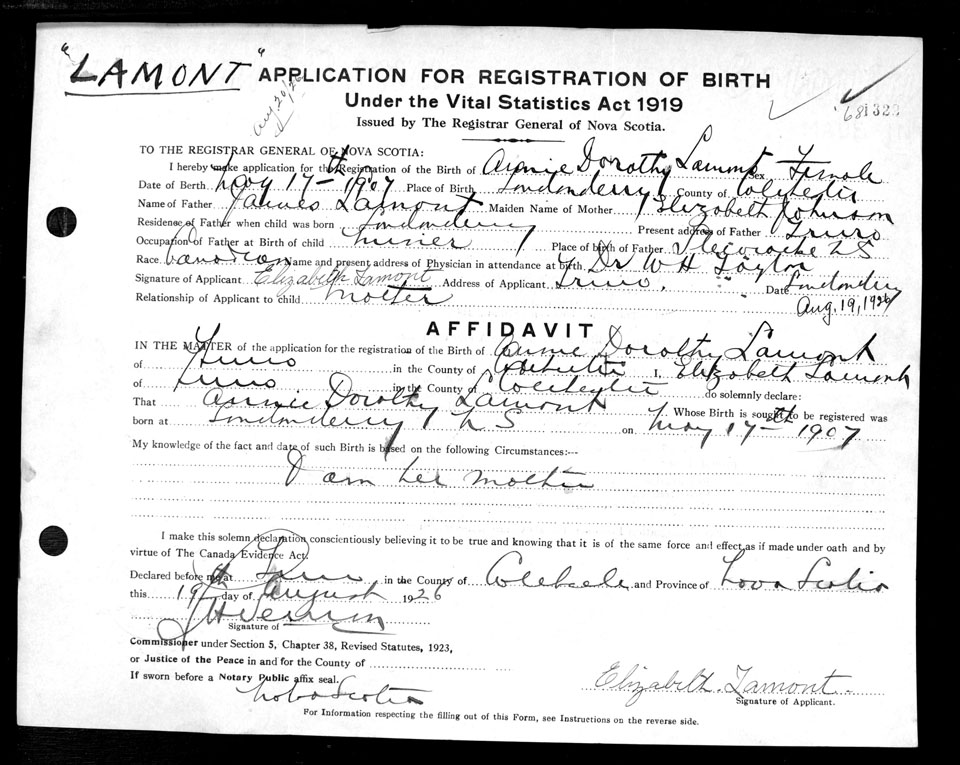 "LAMONT"
APPLICATION FOR REGISTRATION OF BIRTH
Under the Vital Statistics Act 1919
Issued by The Registrar General of Nova Scotia.
Aug 20/26
TO THE REGISTRAR GENERAL OF NOVA SCOTIA:
I hereby make application for the Registration of the Birth of Annie Dorothy Lamont Sex Female
Date of Birth May 17th 1907 Place of Birth Londonderry County of Colchester
Name of Father James Lamont Maiden Name of Mother Elizabeth Johnson
Residence of Father when child was born Londonderry Present address of Father Truro
Occupation of Father at Birth of child Miner Place of birth of Father N S
Race Canadian Name and present address of Physician in attendance at birth Dr W H
Signature of Applicant Elizabeth Lamont Address of Applicant Truro. Date Londonderry
Relationship of Applicant to child Mother Aug. 19, 1926
AFFIDAVIT
IN THE MATTER of the application for the registration of the Birth of Annie Dorothy Lamont
of Truro in the County of Colchester I, Elizabeth Lamont
of Truro in the County of Colchester do solemnly declare:
That Annie Dorothy Lamont Whose Birth is sought to be registered was
born at Londonderry N S on May 17th 1907
My knowledge of the fact and date of such Birth is based on the following Circumstances:--
I am her mother
I make this solemn declaration conscientiously believing it to be true and knowing that it is of the same force and effect as if made under oath and by
virtue of The Canada Evidence Act.
Declared before me at Truro in the County of Colchester and Province of Nova Scotia
this 19th day of August 1926
Signature of
Commissioner under Section 5, Chapter 38, Revised Statutes, 1923,
or Justice of the Peace in and for the County of
If sworn before a Notary Public affix seal.
Nova Scotia
Elizabeth Lamont
Signature of Applicant.
For Information respecting the filling out of this Form, see Instructions on the reverse side.